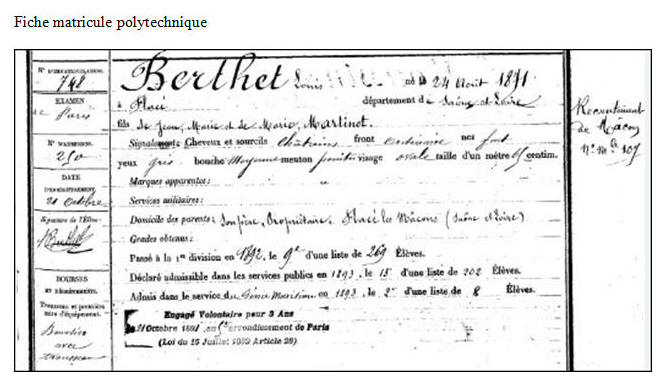 Fiche matricule polytechnique
N° D'IMMATRICULATION.
748
EXAMEN
Paris
N° D'ADMISSION.
250
DATE
D'ENREGISTREMENT.
21 octobre
Signature de l'Élève:
BOURSES
ET TROUSSEAUX.
Trousseau et première
mise d'équipement.
Boursier
avec
trousseau
Berthet Louis né le 24 Août 1871
à Placé département de Saône et Loire
fils de Jean, Marie et de Marie, Martinot.
Signalement: Cheveux et sourcils Châtains front ordinaire nez fort
yeux gris bouche Moyenne menton pointu visage ovale taille d'un mètre 65 centim.
Marques apparentes:
Services militaires:
Domicile des parents: Son père, Propriétaire. Placé les Mâcons (Saône et Loire)
Grades obtenus:
Passé à la 1re division en 1892, le 9e d'une liste de 269 Élèves.
Déclaré admissible dans les services publics en 1893, le 15e d'une liste de 202 Élèves.
Admis dans le service du Génie Maritime en 1893, le 2e d'une liste de 8 Élèves.
Engagé Volontaire pour 3 Ans
Octobre 1891, au 5e arrondissement de Paris
(Loi du 15 Juillet 1889 Article 28)
Recrutement
de Mâcon
N° Mle 107